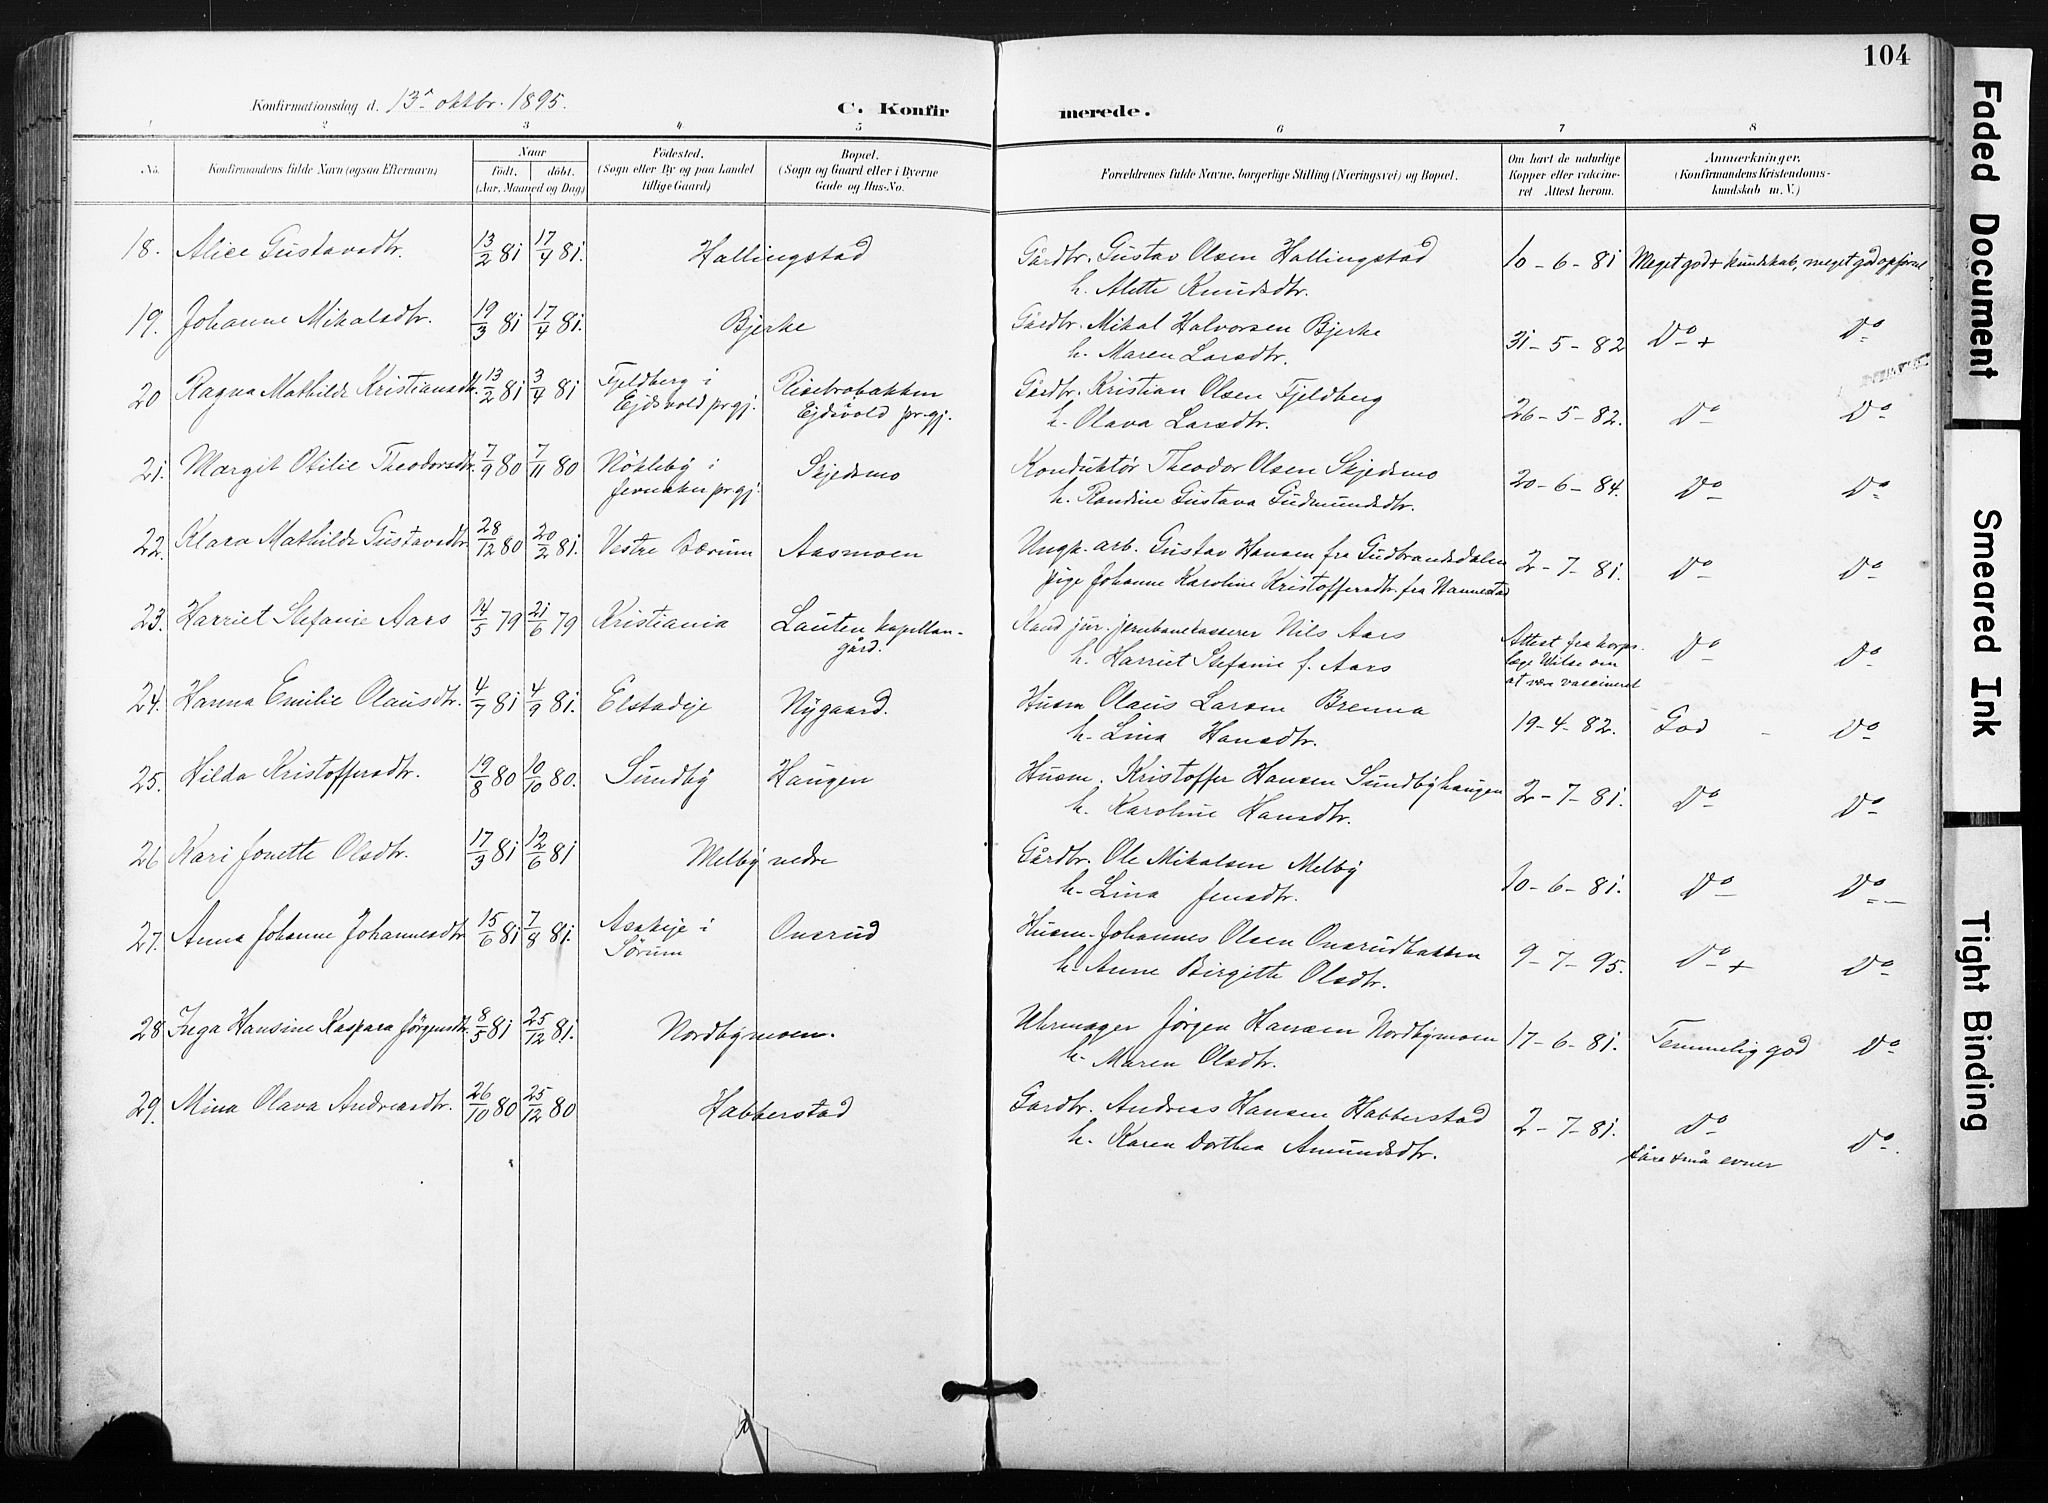 104
Konfirmationsdag d. 13de oktbr. 1895.
C. Konfirmerede.
1 2 3 4 5 6 7 8
No. Konfirmandens fulde Navn (ogsaa Efternavn)
Naar
födt. döbt.
(Aar, Maaned og Dag)
Födested.
(Sogn eller By og paa Landet
tillige Gaard)
Bopæl.
(Sogn og Gaard eller i Byerne
Gade og Hus-No.
Forældrenes fulde Navne, borgerlige Stilling (Næringsvei) og Bopæl.
Om havt de naturlige
Kopper eller vakcine-
ret Attest herom.
Anmærkninger.
(Konfirmandens Kristendoms-
kundskab m. V.)
18. Alice Gustavsdtr. 13/2 81 17/4 81. Hallingstad Gårdbr. Gustav Olsen Hallingstad 10-6-81 Meget god + kundskab, meget god opførsel
h. Alette Knudsdtr.
19. Johanne Mikalsdtr. 19/3 81 17/4 81. Bjerke Gårdbr. Mikal Halvorsen Bjerke 31-5-82 Do + Do
h. Maren Larsdtr.
20 Ragna Mathilde Kristiansdtr. 13/2 81 3/4 81 Fjeldberg i Risebrobakken Gårdbr. Kristian Olsen Fjeldberg 26-5-82. Do Do
Ejdsvold prgj. Ejdsvold prgj. h. Olava Larsdtr.
21. Margit Otilie Theodorsdtr. 7/9 80 7/11 80 Nökleby i Skjedsmo Konduktør Theodor Olsen Skjedsmo 20-6-84. Do Do
Jevnaker prgj. h. Randine Gustava Gudmundsdtr.
22. Klara Mathilde Gustavsdtr. 28/12 80 20/2 81. Vestre Bærum Aasmoen Ungk. arb. Gustav Hansen fra Gudbrandsdalen 2-7-81. Do Do
pige Johanne Karoline Kristoffersdtr. fra Nannestad
23. Harriet Stefanie Aars 14/5 79 21/6 79 Kristiania Lauten kapellan- Kand. jur. jernbanekasserer Nils Aars Attest fra korps- Do Do
gård. h. Harriet Stefanie f. Aars læge Wilse om
at være vaccineret
24. Hanna Emilie Olausdtr. 4/7 81 4/9 81. Elstadeje Nygaard. Husm Olaus Larsen Brenna 19-4-82. God - Do
h. Lina Hansdtr.
25. Hilda Kristoffersdtr. 19/8 80 10/10 80. Sundby Haugen Husm. Kristoffer Hansen Sundbyhaugen 2-7-81. Do Do
h. Karoline Hansdtr.
26 Kari Jonette Olsdtr. 17/3 81 12/6 81 Melby nedre Gårdbr. Ole Mikalsen Melby 10-6-81. Do Do
h. Lina Jensdtr.
27. Anna Johanne Johannesdtr 15/6 81 7/8 81. Asakeje i Onsrud Husm. Johannes Olsen Onsrudbakken 9-7-95. Do + Do
Sørum h. Anne Birgitte Olsdtr.
28 Inga Hansine Kaspara Jörgensdtr. 8/5 81 25/12 81. Nordbymoen. Uhrmager Jørgen Hansen Nordbymoen 17-6-81. Temmelig god Do
h. Maren Olsdtr.
29. Mina Olava Andreasdtr. 26/10 80 25/12 80 Habberstad Gardbr. Andreas Hansen Habberstad 2-7-81. Do Do
h. Karen Dorthea Amundsdtr. små evner
Faded Document
Smeared Ink
Tight Binding